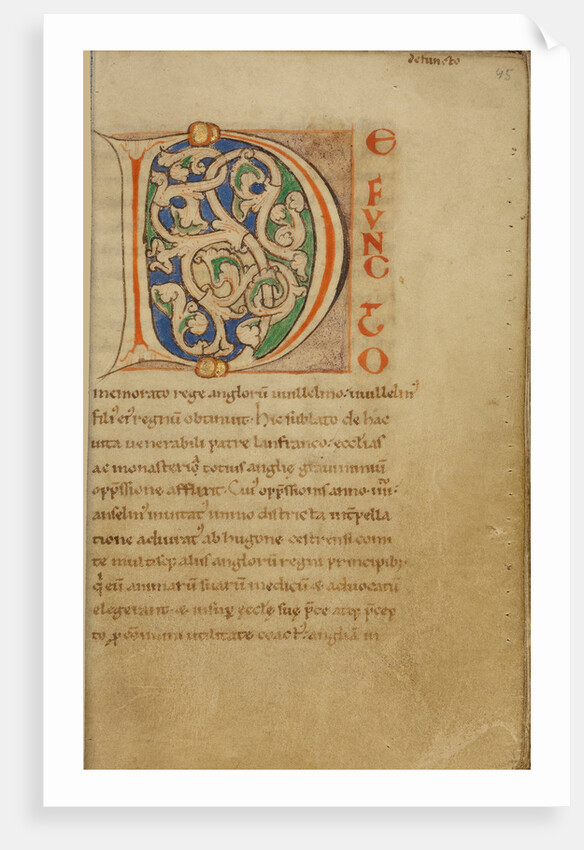 defuncto
45
D
E
FUNC
TO
memorato rege anglorū uuillelmo. uuillelm᾽
fili᾽ ei᾽ regnū obtinuit. Hic sublato de hac
uita uenerabili patre lanfranco. ecclias
ac monasteria totius anglię grauimmū
opp̄ssione afflixit. Cui᾽ opp̄ssionis anno .iiii.
anselm᾽ inuitat᾽ immo districta int̄pella
tione adiurat᾽ ab hugone cestrensi comi
te multisq; aliis anglorū regni principib;
q̄ eū animarū suarū medicū & aduocatū
elegerant. & insup̄ ecclę suę p̄ce atq; p̄cep
to ꝓ cōmuni utilitate coact᾽. angliā in